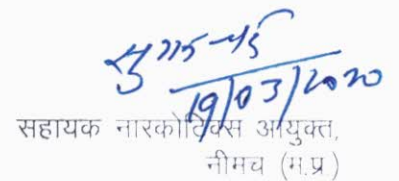 19/03/2020
सहायक नारकोटिक्स आयुक्त,
नीमच (म.प्र)